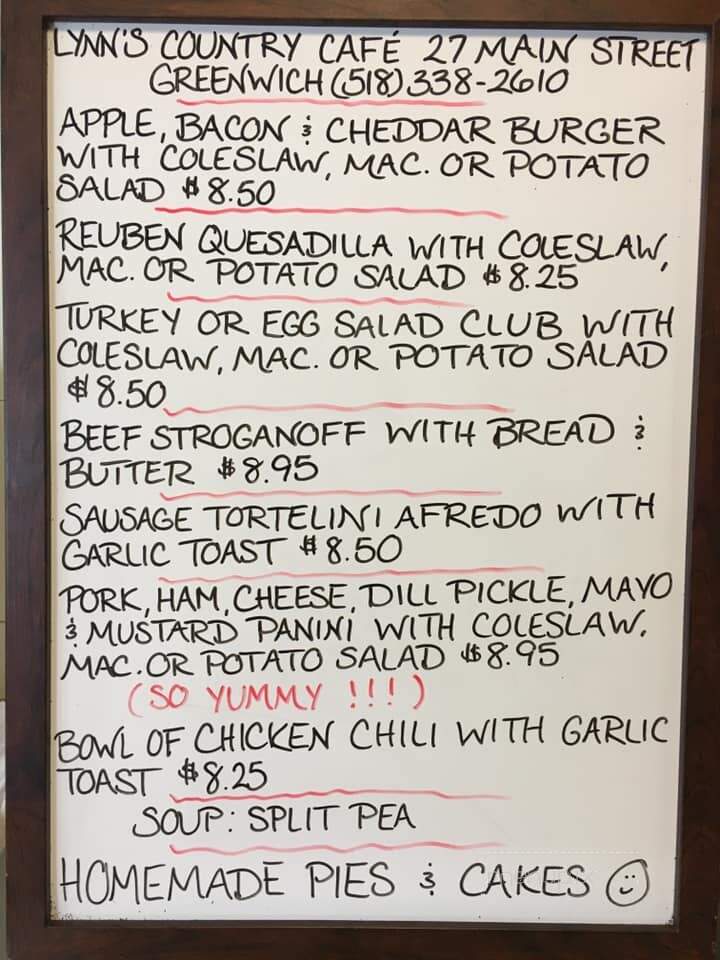 LYNN'S COUNTRY CAFÉ 27 MAIN STREET
GREENWICH (518) 338-2610
APPLE, BACON & CHEDDAR BURGER
WITH COLESLAW, MAC. OR POTATO
SALAD $8.50
REUBEN QUESADILLA WITH COLESLAW,
MAC. OR POTATO SALAD $8.25
TURKEY OR EGG SALAD CLUB WITH
COLESLAW, MAC. OR POTATO SALAD
$8.50
BEEF STROGANOFF WITH BREAD &
BUTTER $8.95
SAUSAGE TORTELINI AFREDO WITH
GARLIC TOAST $8.50
PORK, HAM, CHEESE, DILL PICKLE, MAYO
& MUSTARD PANINI WITH COLESLAW,
MAC. OR POTATO SALAD $8.95
(SO YUMMY !!!)
BOWL OF CHICKEN CHILI WITH GARLIC
TOAST $8.25
SOUP: SPLIT PEA
HOMEMADE PIES & CAKES